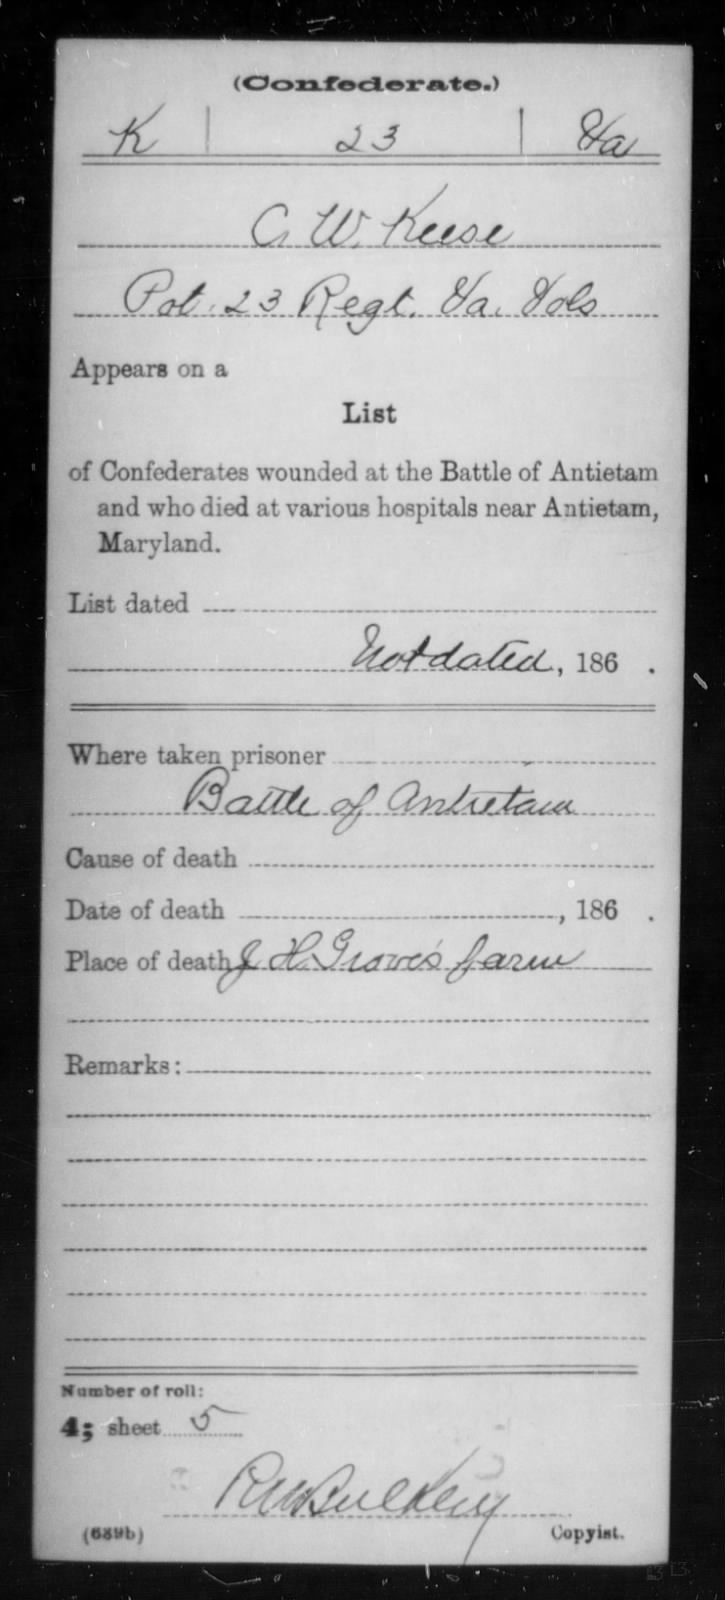 (Confederate.)
K | 23 | Va
C. W. Keese
Pvt. 23 Regt. Va. Vols
Appears on a
List
of Confederates wounded at the Battle of Antietam
and who died at various hospitals near Antietam,
Maryland.
List dated
Not dated, 186 .
Where taken prisoner
Battle of Antietam
Cause of death
Date of death , 186 .
Place of death J H. Grove's farm
Remarks:
Number of roll:
4; sheet 5
(639b) Copyist.